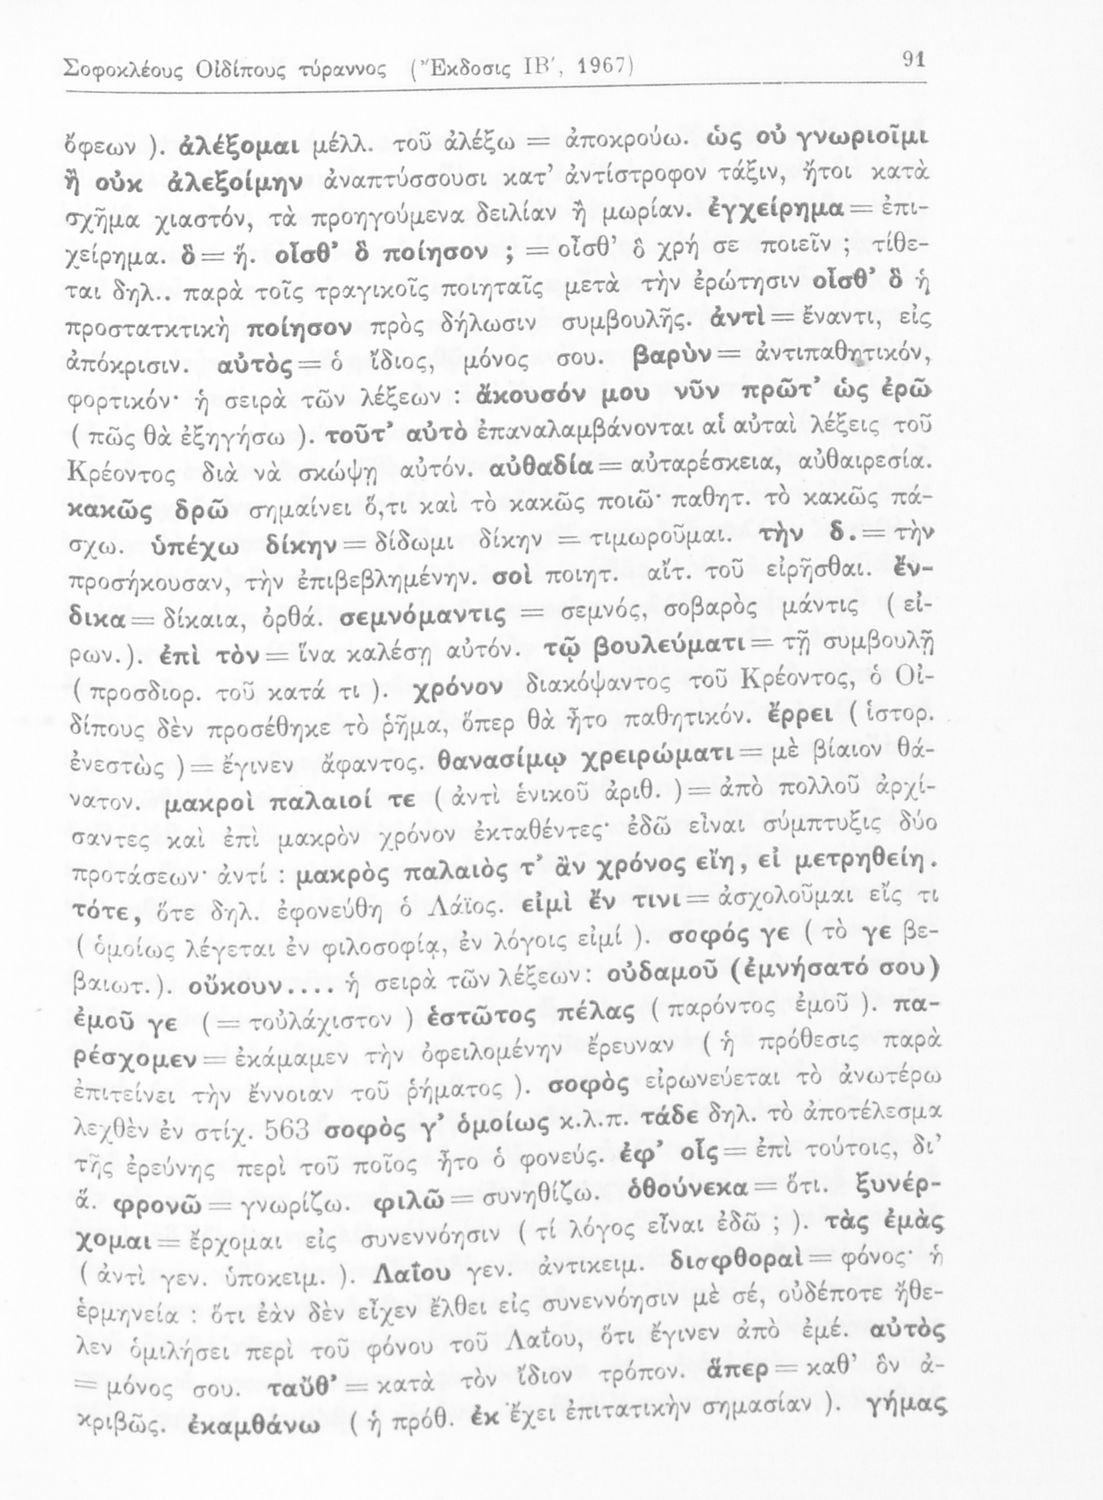 Σοφοκλέους Οἰδίπους τύραννος (Ἔκδοσις ΙΒ', 1967) 91
ὄφεων ). ἀλέξομαι μέλλ. τοῦ ἀλέξω = ἀποκρούω. ὡς οὐ γνωριοῖμι
ἢ οὐκ ἀλεξοίμην ἀναπτύσσουσι κατ' ἀντίστροφον τάξιν, ἤτοι κατὰ
σχῆμα χιαστόν, τὰ προηγούμενα δειλίαν ἢ μωρίαν. ἐγχείρημα = ἐπι-
χείρημα. ὃ = ἥ. οἶσθ' ὃ ποίησον ; = οἶσθ' ὃ χρή σε ποιεῖν ; τίθε-
ται δηλ.. παρὰ τοῖς τραγικοῖς ποιηταῖς μετὰ τὴν ἐρώτησιν οἶσθ' ὃ ἡ
προστατκτικὴ ποίησον πρὸς δήλωσιν συμβουλῆς. ἀντὶ = ἔναντι, εἰς
ἀπόκρισιν. αὐτὸς = ὁ ἴδιος, μόνος σου. βαρὺν = ἀντιπαθητικόν,
φορτικόν· ἡ σειρὰ τῶν λέξεων : ἄκουσόν μου νῦν πρῶτ' ὡς ἐρῶ
( πῶς θὰ ἐξηγήσω ). τοῦτ' αὐτὸ ἐπαναλαμβάνονται αἱ αὐταὶ λέξεις τοῦ
Κρέοντος διὰ νὰ σκώψῃ αὐτόν. αὐθαδία = αὐταρέσκεια, αὐθαιρεσία.
κακῶς δρῶ σημαίνει ὅ,τι καὶ τὸ κακῶς ποιῶ· παθητ. τὸ κακῶς πά-
σχω. ὑπέχω δίκην = δίδωμι δίκην = τιμωροῦμαι. τὴν δ. = τὴν
προσήκουσαν, τὴν ἐπιβεβλημένην. σοὶ ποιητ. αἴτ. τοῦ εἰρῆσθαι. ἔν-
δικα = δίκαια, ὀρθά. σεμνόμαντις = σεμνός, σοβαρὸς μάντις ( εἰ-
ρων.). ἐπὶ τὸν = ἵνα καλέσῃ αὐτόν. τῷ βουλεύματι = τῇ συμβουλῇ
( προσδιορ. τοῦ κατά τι ). χρόνον διακόψαντος τοῦ Κρέοντος, ὁ Οἰ-
δίπους δὲν προσέθηκε τὸ ῥῆμα, ὅπερ θὰ ἦτο παθητικόν. ἔρρει ( ἱστορ.
ἐνεστὼς ) = ἔγινεν ἄφαντος. θανασίμῳ χρειρώματι = μὲ βίαιον θά-
νατον. μακροὶ παλαιοί τε ( ἀντὶ ἑνικοῦ ἀριθ. ) = ἀπὸ πολλοῦ ἀρχί-
σαντες καὶ ἐπὶ μακρὸν χρόνον ἐκταθέντες· ἐδῶ εἶναι σύμπτυξις δύο
προτάσεων· ἀντί : μακρὸς παλαιὸς τ' ἂν χρόνος εἴη, εἰ μετρηθείη.
τότε, ὅτε δηλ. ἐφονεύθη ὁ Λάϊος. εἰμὶ ἔν τινι = ἀσχολοῦμαι εἴς τι
( ὁμοίως λέγεται ἐν φιλοσοφίᾳ, ἐν λόγοις εἰμί ). σοφός γε ( τὸ γε βε-
βαιωτ.). οὔκουν.... ἡ σειρὰ τῶν λέξεων: οὐδαμοῦ (ἐμνήσατό σου)
ἐμοῦ γε ( = τοὐλάχιστον ) ἑστῶτος πέλας ( παρόντος ἐμοῦ ). πα-
ρέσχομεν = ἐκάμαμεν τὴν ὀφειλομένην ἔρευναν ( ἡ πρόθεσις παρὰ
ἐπιτείνει τὴν ἔννοιαν τοῦ ῥήματος ). σοφὸς εἰρωνεύεται τὸ ἀνωτέρω
λεχθὲν ἐν στίχ. 563 σοφὸς γ' ὁμοίως κ.λ.π. τάδε δηλ. τὸ ἀποτέλεσμα
τῆς ἐρεύνης περὶ τοῦ ποῖος ἦτο ὁ φονεύς. ἐφ' οἷς = ἐπὶ τούτοις, δι'
ἅ. φρονῶ = γνωρίζω. φιλῶ = συνηθίζω. ὁθούνεκα = ὅτι. ξυνέρ-
χομαι = ἔρχομαι εἰς συνεννόησιν ( τί λόγος εἶναι ἐδῶ ; ). τὰς ἐμὰς
( ἀντὶ γεν. ὑποκειμ. ). Λαΐου γεν. ἀντικειμ. διαφθοραὶ = φόνος· ἡ
ἑρμηνεία : ὅτι ἐὰν δὲν εἶχεν ἔλθει εἰς συνεννόησιν μὲ σέ, οὐδέποτε ἤθε-
λεν ὁμιλήσει περὶ τοῦ φόνου τοῦ Λαΐου, ὅτι ἔγινεν ἀπὸ ἐμέ. αὐτὸς
= μόνος σου. ταὔθ' = κατὰ τὸν ἴδιον τρόπον. ἅπερ = καθ' ὃν ἀ-
κριβῶς. ἐκαμθάνω ( ἡ πρόθ. ἐκ ἔχει ἐπιτατικὴν σημασίαν ). γήμας